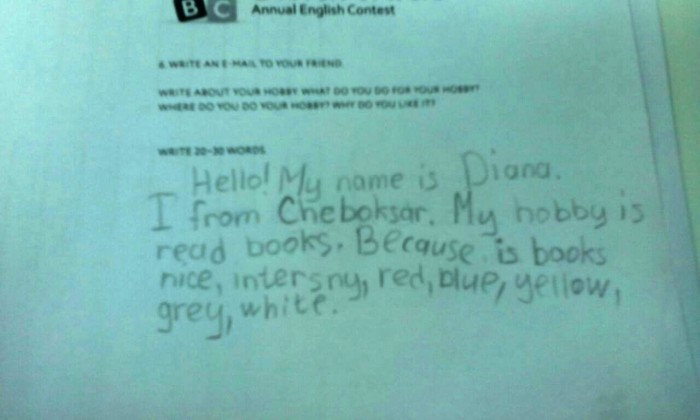 BC
Annual English Contest
6. WRITE AN E-MAIL TO YOUR FRIEND.
WRITE ABOUT YOUR HOBBY. WHAT DO YOU DO FOR YOUR HOBBY?
WHERE DO YOU DO YOUR HOBBY? WHY DO YOU LIKE IT?
WRITE 20-30 WORDS
Hello! My name is Diana.
I from Cheboksar. My hobby is
read books. Because is books
nice, intersny, red, blue, yellow,
grey, white.